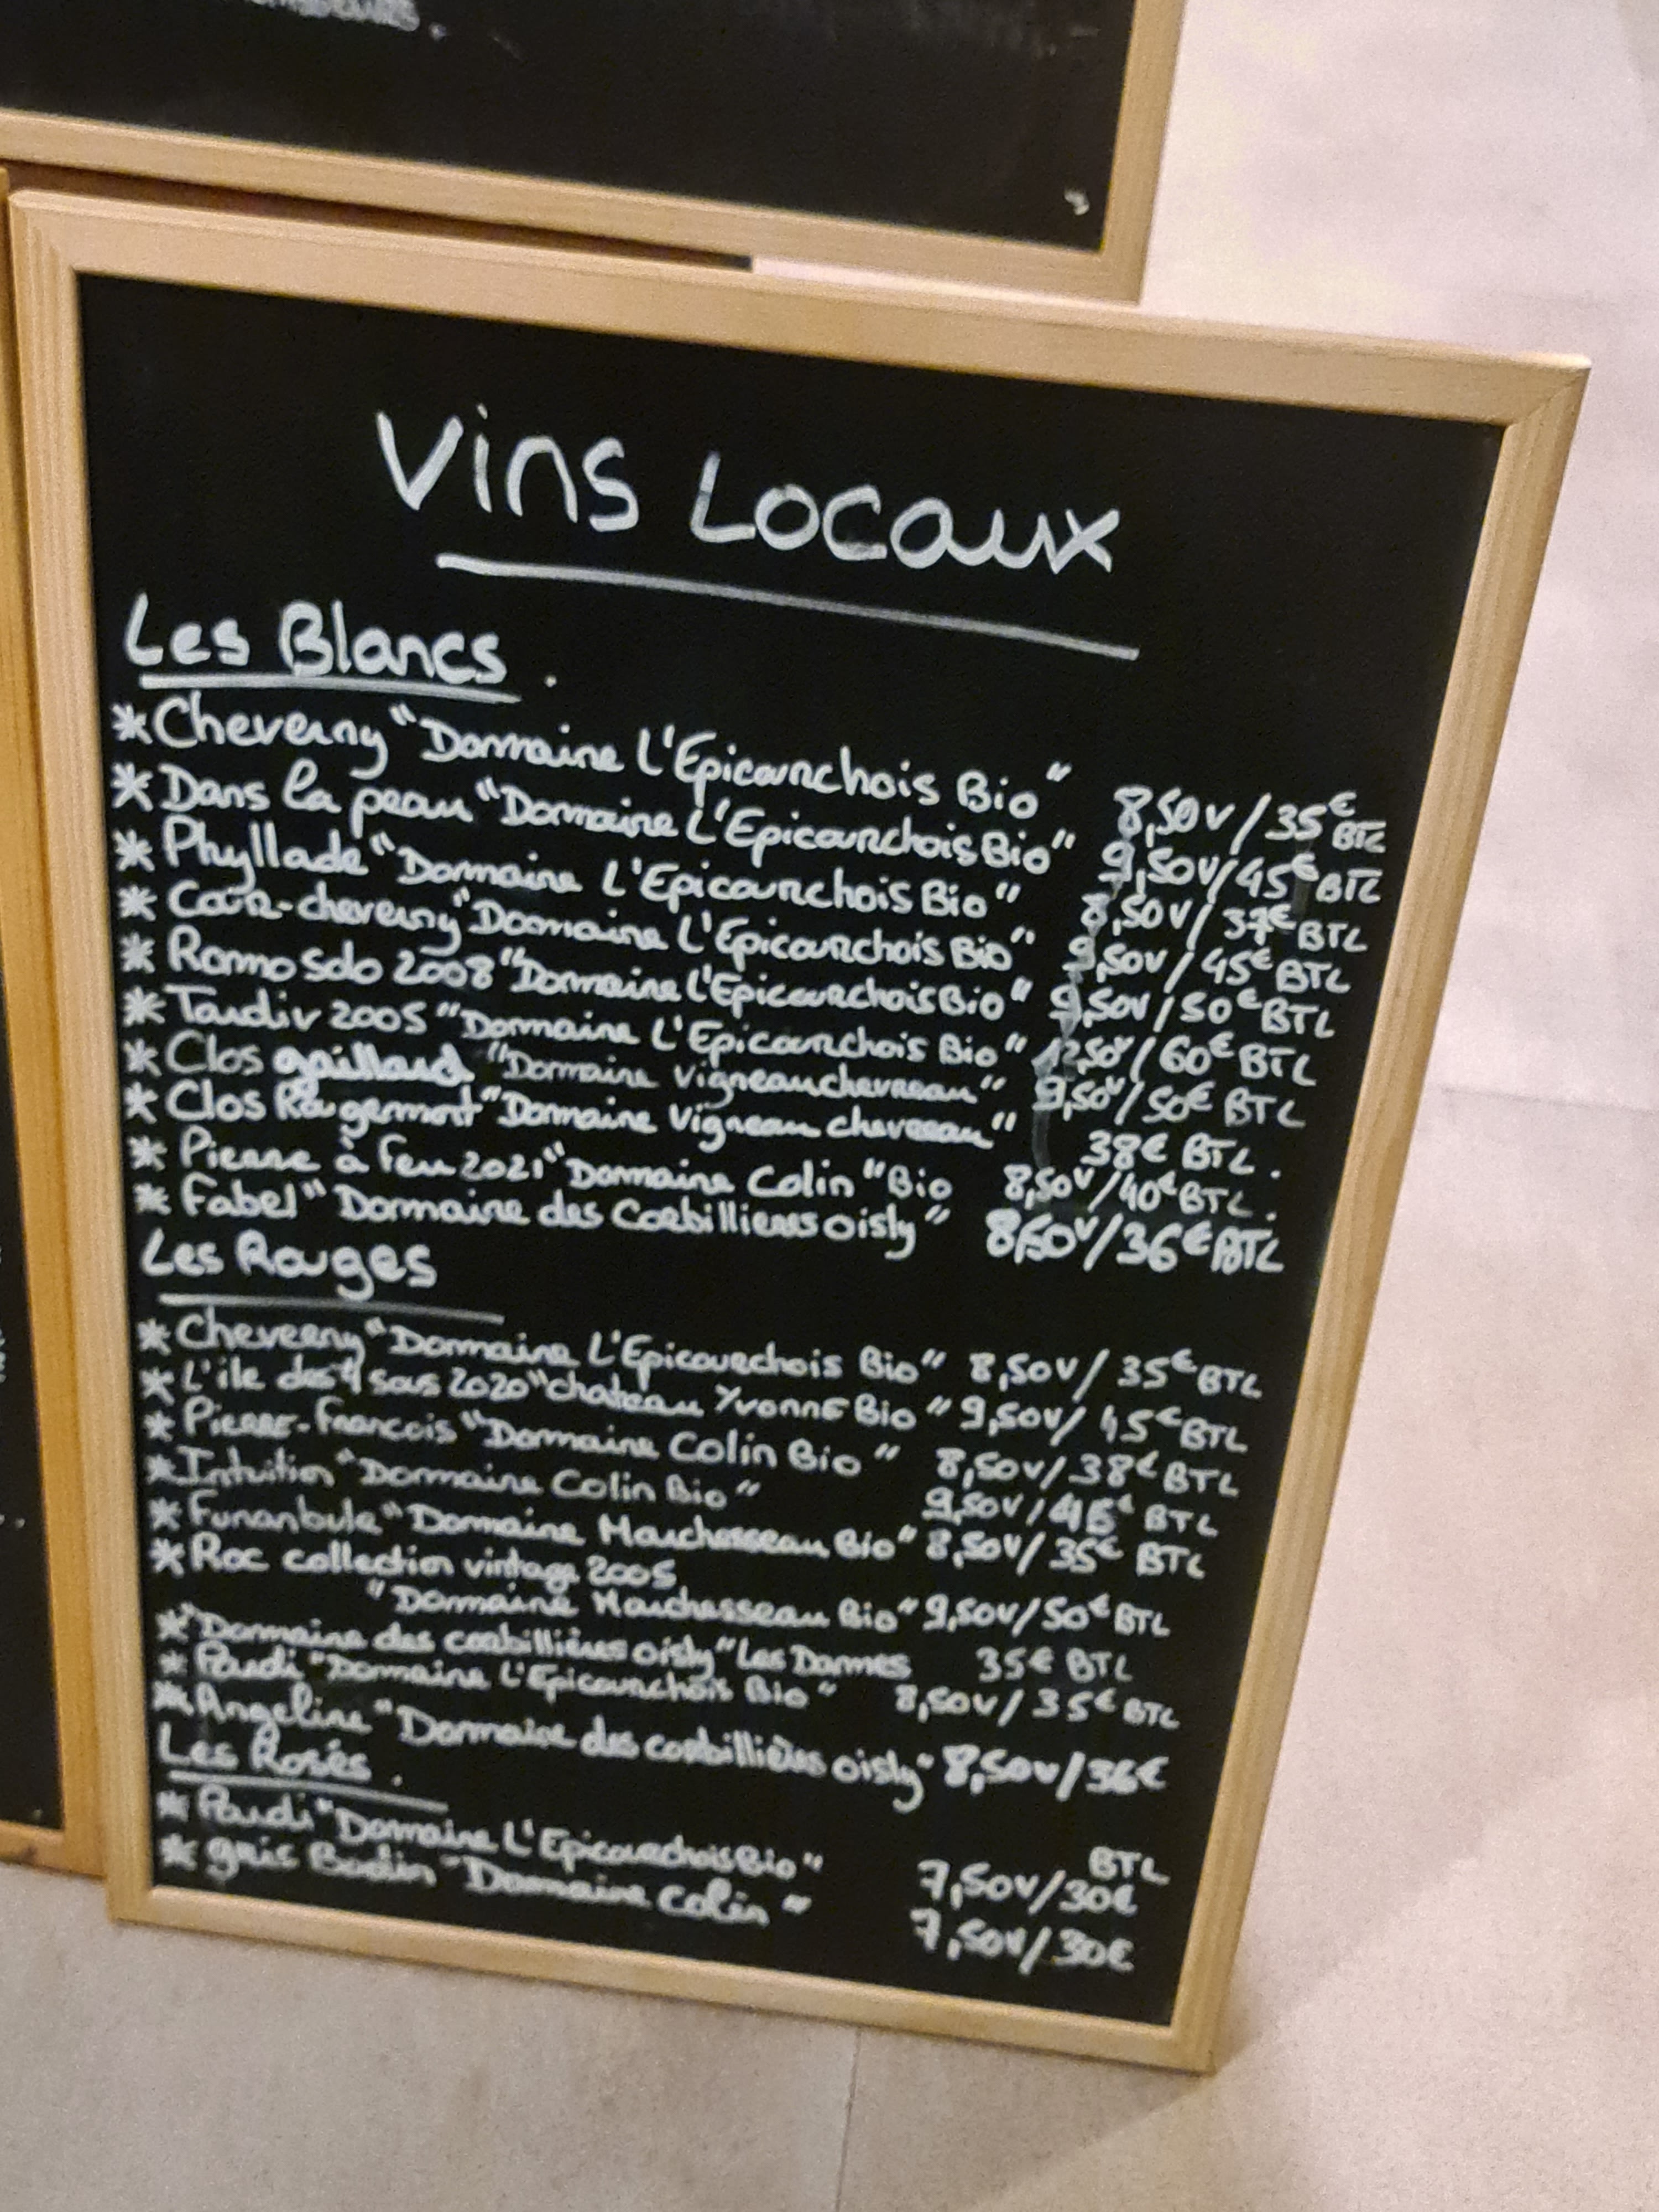 Vins Locaux
Les Blancs.
*Cheverny "Domaine L'Epicourchois Bio" 8,50v/35€ BTL
*Dans la peau "Domaine L'Epicourchois Bio" 9,50v/45€ BTL
*Phyllade "Domaine L'Epicourchois Bio" 8,50v/37€ BTL
*Cour-cheverny "Domaine L'Epicourchois Bio" 9,50v/45€ BTL
*Romosdo 2008 "Domaine L'Epicourchois Bio" 9,50v/50€ BTL
*Tardiv 2005 "Domaine L'Epicourchois Bio" 12,50v/60€ BTL
*Clos gaillard "Domaine Vigneauchevreau" 9,50v/50€ BTL
*Clos Rougemont "Domaine Vigneau chevreau" 38€ BTL.
*Pierre à feu 2021 "Domaine Colin" Bio 8,50v/40€ BTL.
*Fabel "Domaine des Corbillieres oisly" 8,50v/36€ BTL
Les Rouges
*Cheverny "Domaine L'Epicourchois Bio" 8,50v/35€ BTL
*L'ile des 4 sous 2020 "chateau Yvonne Bio" 9,50v/45€ BTL
*Pierre-Francois "Domaine Colin Bio" 8,50v/38€ BTL
*Intuition "Domaine Colin Bio" 9,50v/ BTL
*Funanbule "Domaine Marchesseau Bio" 8,50v/35€ BTL
*Roc collection vintage 2005
"Domaine Marchesseau Bio" 9,50v/50€ BTL
*"Domaine des corbillières oisly" Les Dames 35€ BTL
*Pardi "Domaine L'Epicourchois Bio" 8,50v/35€ BTL
*Angeline "Domaine des corbillières oisly" 8,50v/36€
BTL
Les Rosés.
*Pardi "Domaine L'Epicourchois Bio" 7,50v/30€
*gris Bodin "Domaine Colin" 7,50v/30€